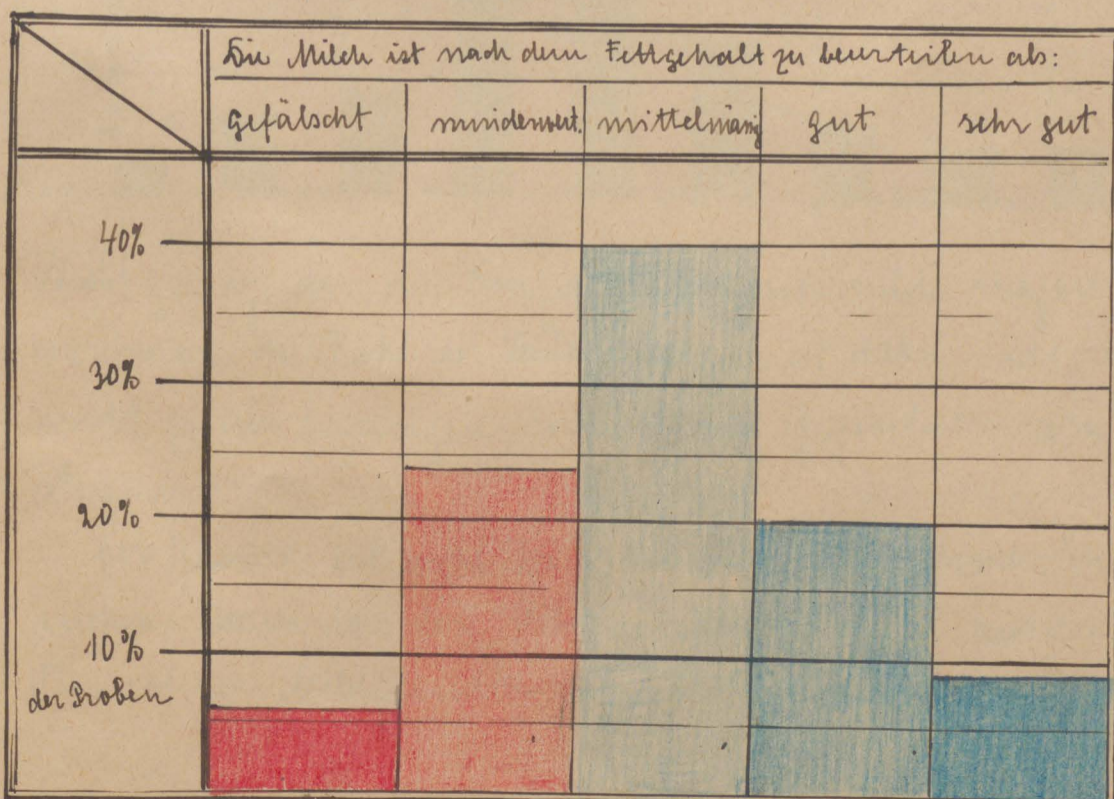 Die Milch ist nach dem Fettgehalt zu beurteilen als:
gefälscht minderwert. mittelmäßig gut sehr gut
40%
30%
20%
10%
der Proben